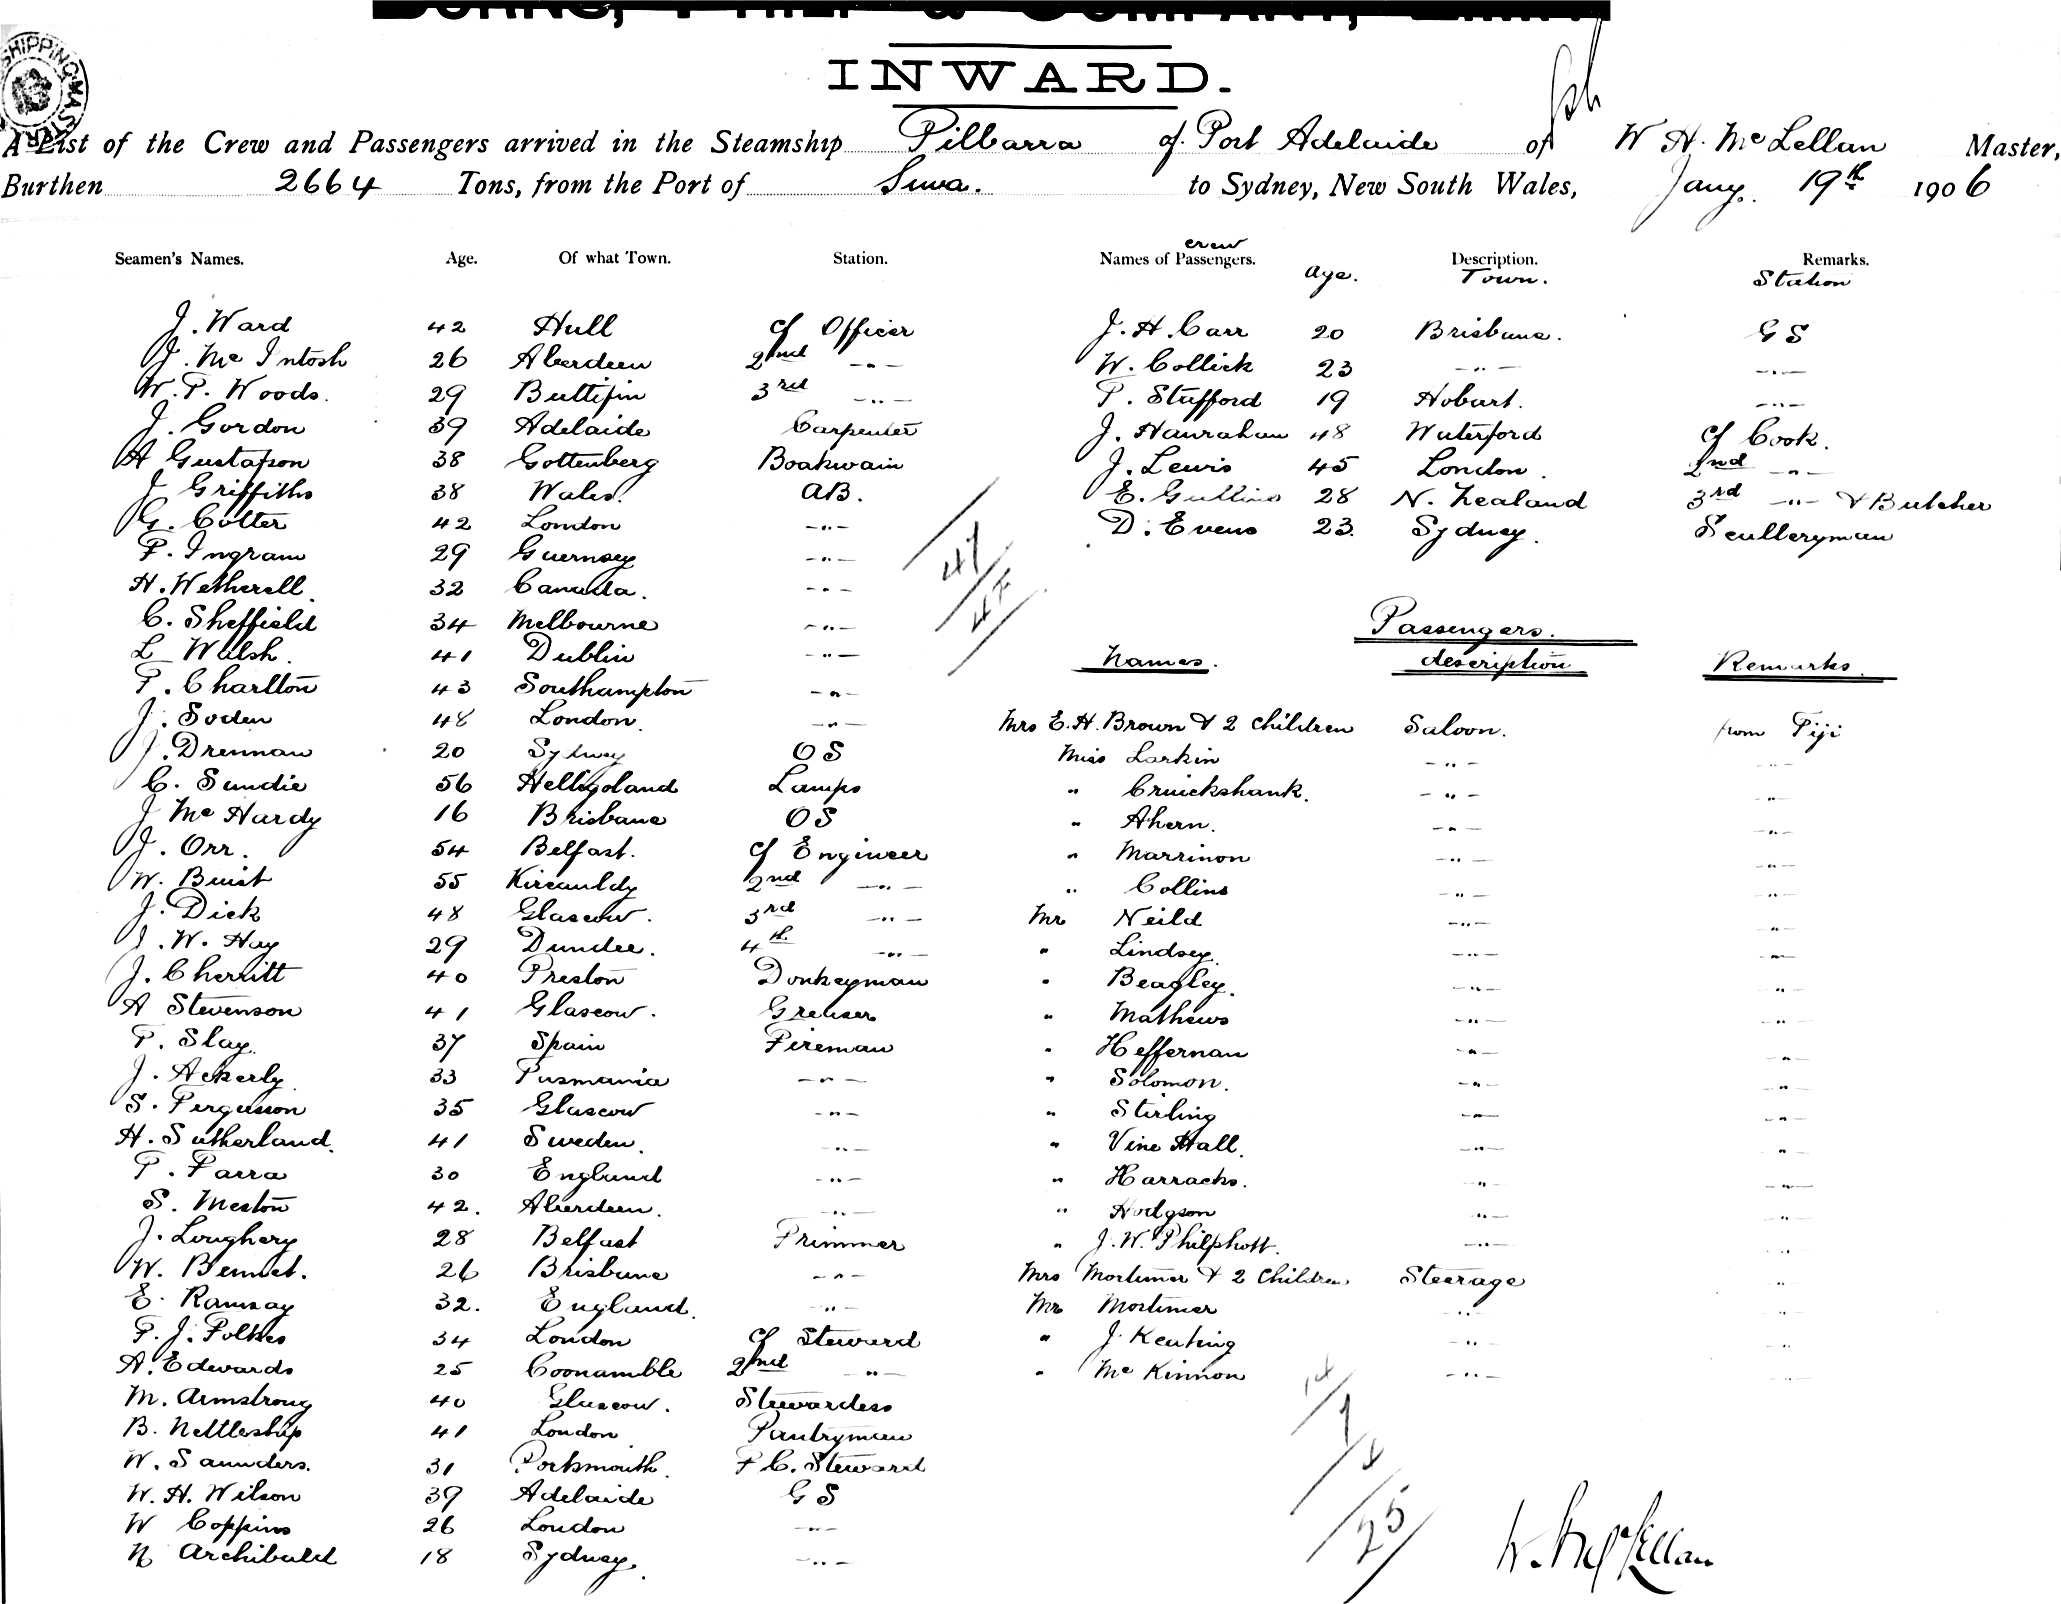 BURNS, PHILP & COMPANY, LIMITED
INWARD.
SHIPPING MASTER
A List of the Crew and Passengers arrived in the Steamship Pilbarra of Port Adelaide of W H. McLellan Master,
Burthen 2664 Tons, from the Port of Suva. to Sydney, New South Wales, Jany. 19th 1906
Seamen's Names. Age. Of what Town. Station.
J. Ward 42 Hull Cf Officer
J. McIntosh 26 Aberdeen 2nd -"-
W. P. Woods. 29 3rd -"-
J. Gordon 39 Adelaide Carpenter
A Gustafson 38 Gottenberg Boatswain
J Griffiths 38 Wales. AB.
G. Cotter 42 London -"-
P. Ingram 29 Guernsey -"-
H. Wetherell. 32 Canada. -"-
C. Sheffield 34 Melbourne -"-
L Walsh. 41 Dublin -"-
P. Charlton 43 Southampton -"-
J. Soden 48 London. -"-
J. Drennan 20 Sydney OS
C. Sundie 56 Helligoland Lamps
J McHardy 16 Brisbane OS
J. Orr. 54 Belfast. Cf Engineer
W. Buist 55 Kircauldy 2nd -"-
J. Dick 48 Glascow. 3rd -"-
J. W. Hay 29 Dundee. 4th. -"-
J. Cherritt 40 Preston Donkeyman
A Stevenson 41 Glascow. Greaser
P. Slay. 37 Spain Fireman
J. Ackerly. 33 -"-
S. Ferguson 35 Glascow -"-
H. Sutherland. 41 Sweden. -"-
P. Parra 30 England -"-
S. Meston 42. Aberdeen. -"-
J. Loughery 28 Belfast Trimmer
W. Bennet. 26 Brisbane -"-
E. Ramsay 32. England. -"-
P. J. Folkes 34 London Cf Steward
A. Edwards 25 Coonamble 2nd -"-
M. Armstrong 40 Glascow. Stewardess
B. Nettleship 41 London Pantryman
W. Saunders. 31 Portsmouth. F C. Steward
W. H. Wilson 39 Adelaide G S
W Coppins 26 London -"-
N Archibald 18 Sydney. -"-
47
crew
Names of Passengers. Age. Description. Town. Remarks. Station
J. H. Carr 20 Brisbane. G S
W. Collick 23 -"- -"-
P. Stufford 19 Hobart. -"-
J. Hanrahan 48 Waterford Cf Cook.
J. Lewis 45 London. 2nd -"-
E. Gullins 28 N. Zealand 3rd -"- & Butcher
D. Evens 23. Sydney. Sculleryman
Passengers.
Names. description Remarks.
Mrs E. H. Brown & 2 Children Saloon. from Fiji
Miss Larkin -"- -"-
" Cruickshank. -"- -"-
" Ahern. -"- -"-
" Marrinon -"- -"-
" Collins -"- -"-
Mr Neild -"- -"-
" Lindsey. -"- -"-
" Beagley. -"- -"-
" Mathews -"- -"-
" Heffernan -"- -"-
" Solomon. -"- -"-
" Stirling -"- -"-
" Vine Hall. -"- -"-
" Harracks. -"- -"-
" Hodgson -"- -"-
" J. W. Philphott. -"- -"-
Mrs Mortimer & 2 Children Steerage "
Mr Mortimer -"- "
" J. Keating -"- -"-
" McKinnon -"-
25
W. H. McLellan